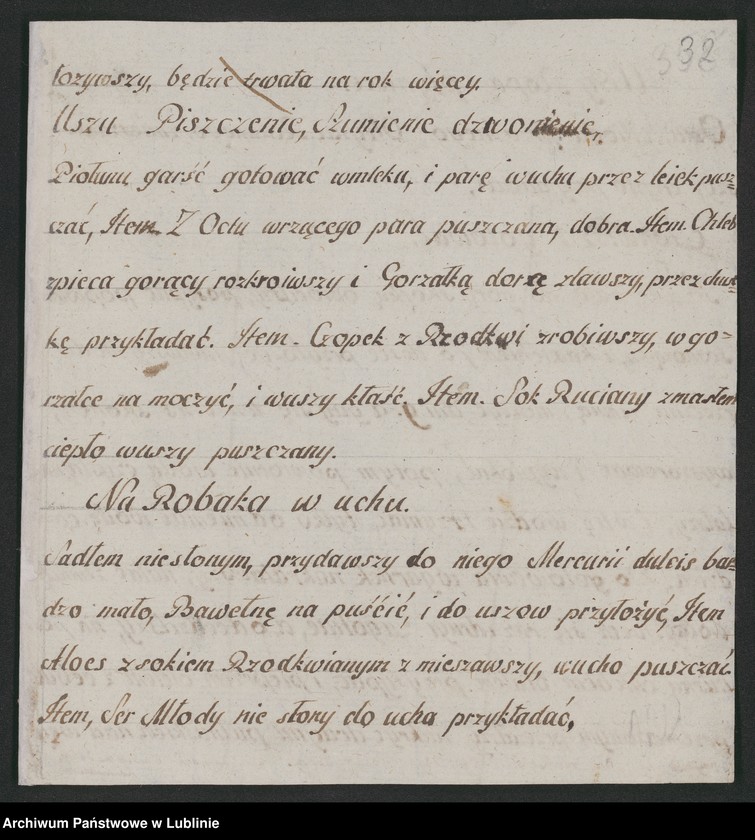 32
łozywszy, będzie trwała na rok więcey.
Uszu Piszczenie, Szumienie dzwonienie,
Piołunu garść gotować wmleku, i parę wuchu przez leiek pusz=
czać, Item Z Octu wrzącego para puszczana, dobra. Item. Chleb
zpieca gorący rozkroiwszy i Gorzałką dorzę zlawszy, przez chus=
kę przykładać. Item. Czopek z Rzodkwi zrobiwszy, w go=
rzałce na moczyć, i wuszy kłaść. Item. Sok Ruciany zmasłem
ciepło wuszy puszczany.
Na Robaka w uchu.
Sadłem niesłonym, przydawszy do niego Mercurii dulcis bar=
dzo mało, Bawełnę na puścić, i do uszow przyłożyć, Item
Aloes zsokiem Rzodkwianym z mieszawszy, wucho puszczać.
Item, Ser Młody nie słony do ucha przykładać,
Archiwum Państwowe w Lublinie